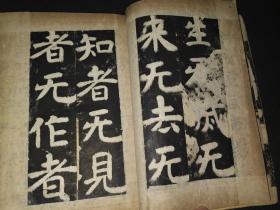 生无无
来无去无
知者无見
者无作者